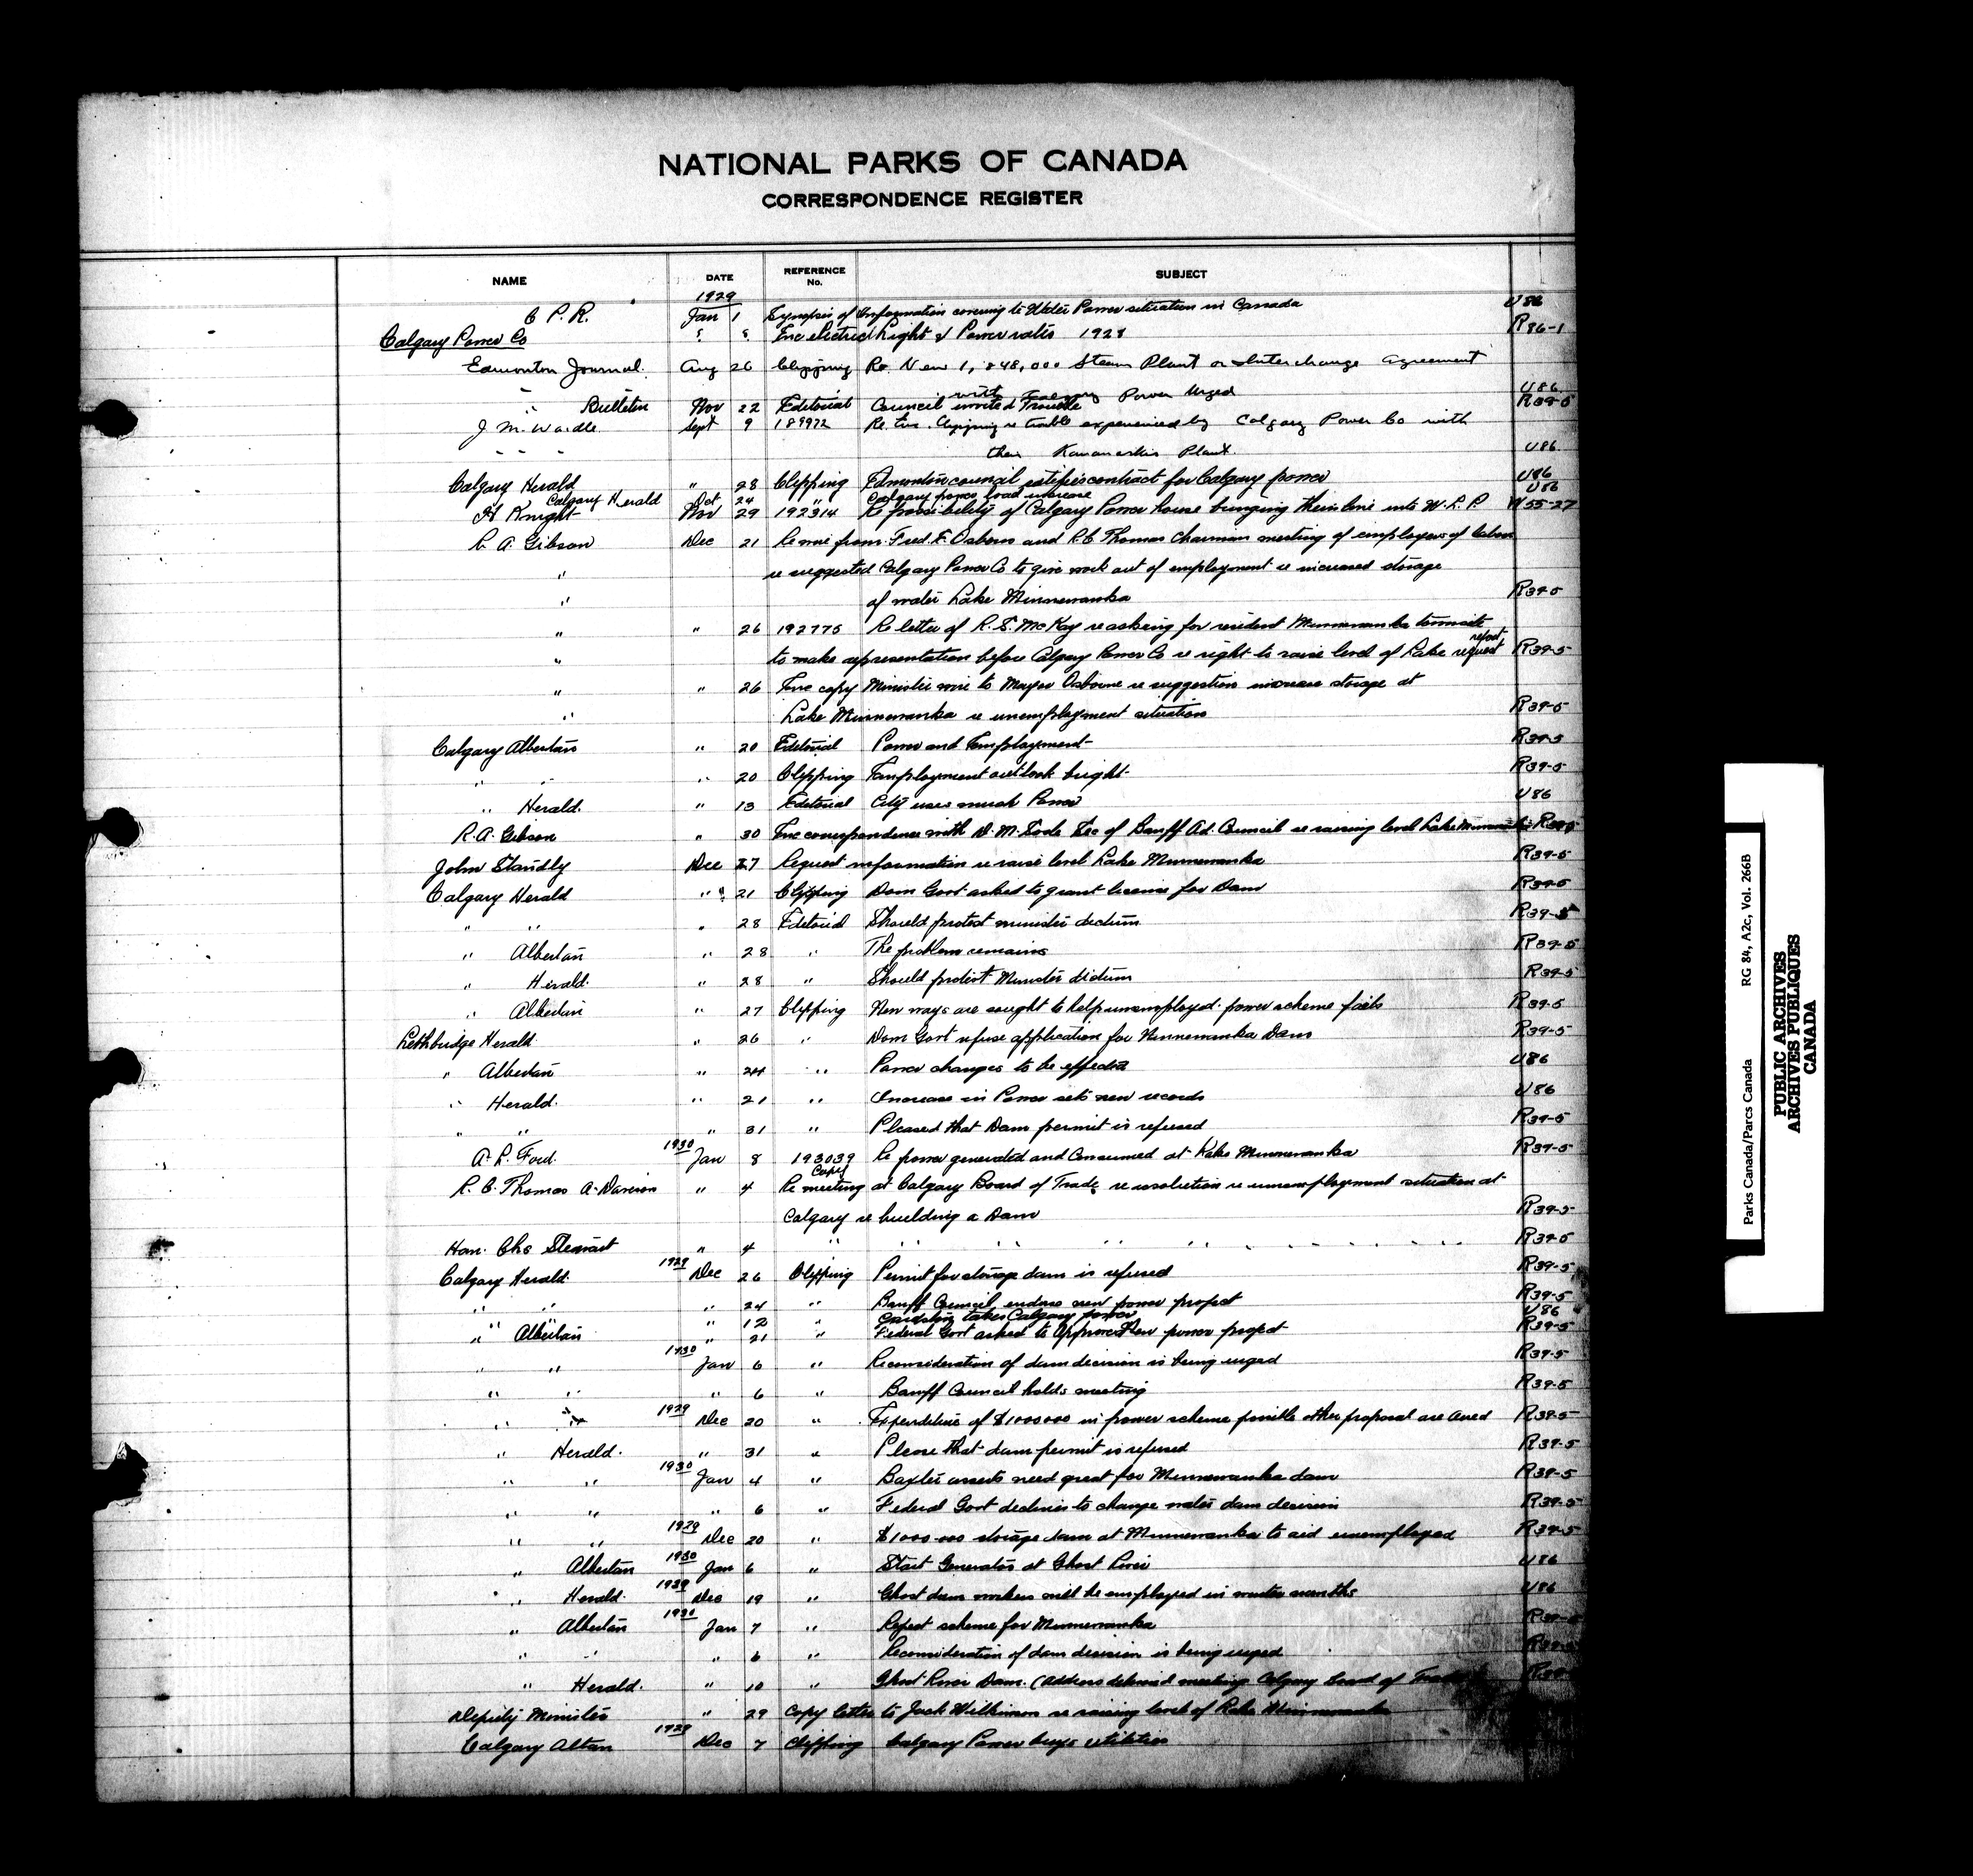 NATIONAL PARKS OF CANADA
CORRESPONDENCE REGISTER
NAME DATE REFERENCE No. SUBJECT
1929
C P. R. Jan 1 Synopsis of Information covering to Water Power situation in Canada U86
Calgary Power Co " " Enc electric Light & Power rates 1928 R86-1
Edmonton Journal. Aug 26 Clipping Re. New 1,848,000 Steam Plant or Interchange agreement
with Calgary Power Urged U86
" Bulletin Nov 22 Editorial Council invited Trouble R39-5
J M. Wardle. Sept 9 189972 Re. Enc. Clipping re trouble experienced by Calgary Power Co with
" " " their Kananaskis Plant. U86
Calgary Herald " 28 Clipping Edmonton council ratifies contract for Calgary power U86
Calgary Herald Oct 24 " Calgary power load increase U86
H Knight Nov 29 192314 Re possibility of Calgary Power house bringing their line into W.L.P. W55-27
R A. Gibson Dec 21 Re wire from Fred. E. Osborn and R C Thomas Chairman meeting of employers of labor
" re suggested Calgary Power Co to give work out of employment re increased storage
" of water Lake Minnewanka R39-5
" " 26 192775 Re letter of R. S. McKay re asking for resident Minnewanka townsite
" to make representation before Calgary Power Co re right to raise level of Lake request R39-5
" " 26 Enc copy Minister wire to Mayor Osborne re suggestion increase storage at
" Lake Minnewanka re unemployment situation R39-5
Calgary Albertan " 20 Editorial Power and Employment R39-5
" " " 20 Clipping Employment outlook bright R39-5
" Herald. " 13 Editorial City uses much Power U86
R. A. Gibson " 30 Enc correspondence with D. M. Soole Sec of Banff Ad. Council re raising level Lake Minnewanka R39-5
John Standly Dec 27 Request information re raise level Lake Minnewanka R39-5
Calgary Herald " 21 Clipping Dom Govt asked to grant license for Dam R39-5
" " " 28 Editorial Should protest minister dictum R39-5
" Albertan " 28 " The problem remains R39-5
" Herald. " 28 " Should protest Minister dictum R39-5
" Albertan " 27 Clipping New ways are sought to help unemployed. power scheme fails R39-5
Lethbridge Herald. " 26 " Dom Govt refuse application for Minnewanka Dam R39-5
" Albertan " 24 " Power changes to be effected U86
" Herald. " 21 " Increase in Power sets new records U86
" " " 31 " Pleased that Dam permit is refused R39-5
A. L. Ford. 1930 Jan 8 193039 Re power generated and Consumed at Lake Minnewanka R39-5
Copy
R. C. Thomas A. Davison " 4 Re meeting at Calgary Board of Trade re resolution re unemployment situation at
Calgary re building a Dam R39-5
Hon. Chs Stewart " 4 " " " " " R39-5
Calgary Herald. 1929 Dec 26 Clipping Permit for storage dam is refused R39-5
" " " 24 " Banff Council endorse new power project R39-5
" " " 12 " takes Calgary power U86
" Albertan " 21 " Federal Govt asked to Approve New power project R39-5
" " 1930 Jan 6 " Reconsideration of dam decision is being urged R39-5
" " " 6 " Banff Council holds meeting R39-5
" " 1929 Dec 20 " Expenditure of $1000000 in power scheme possible other proposal are aired R39-5
" Herald. " 31 " Please that dam permit is refused R39-5
" " 1930 Jan 4 " Baxter asserts need great for Minnewanka dam R39-5
" " " 6 " Federal Govt declines to change water dam decision R39-5
" " 1929 Dec 20 " $1000 000 storage dam at Minnewanka to aid unemployed R39-5
" Albertan 1930 Jan 6 " Start Generator at Ghost River U86
" Herald. 1929 Dec 19 " Ghost dam workers will be employed in winter months U86
" Albertan 1930 Jan 7 " Reject scheme for Minnewanka R39-5
" " " 6 " Reconsideration of dam decision is being urged R39-5
" Herald. " 10 " Ghost River Dam. (Address delivered meeting Calgary Board of Trade R39
Deputy Minister " 29 Copy letter to Jack Wilkinson re raising level of Lake Minnewanka
Calgary Altan 1929 Dec 7 Clipping Calgary Power buys utilities
Parks Canada/Parcs Canada RG 84, A2c, Vol. 266B
PUBLIC ARCHIVES
ARCHIVES PUBLIQUES
CANADA